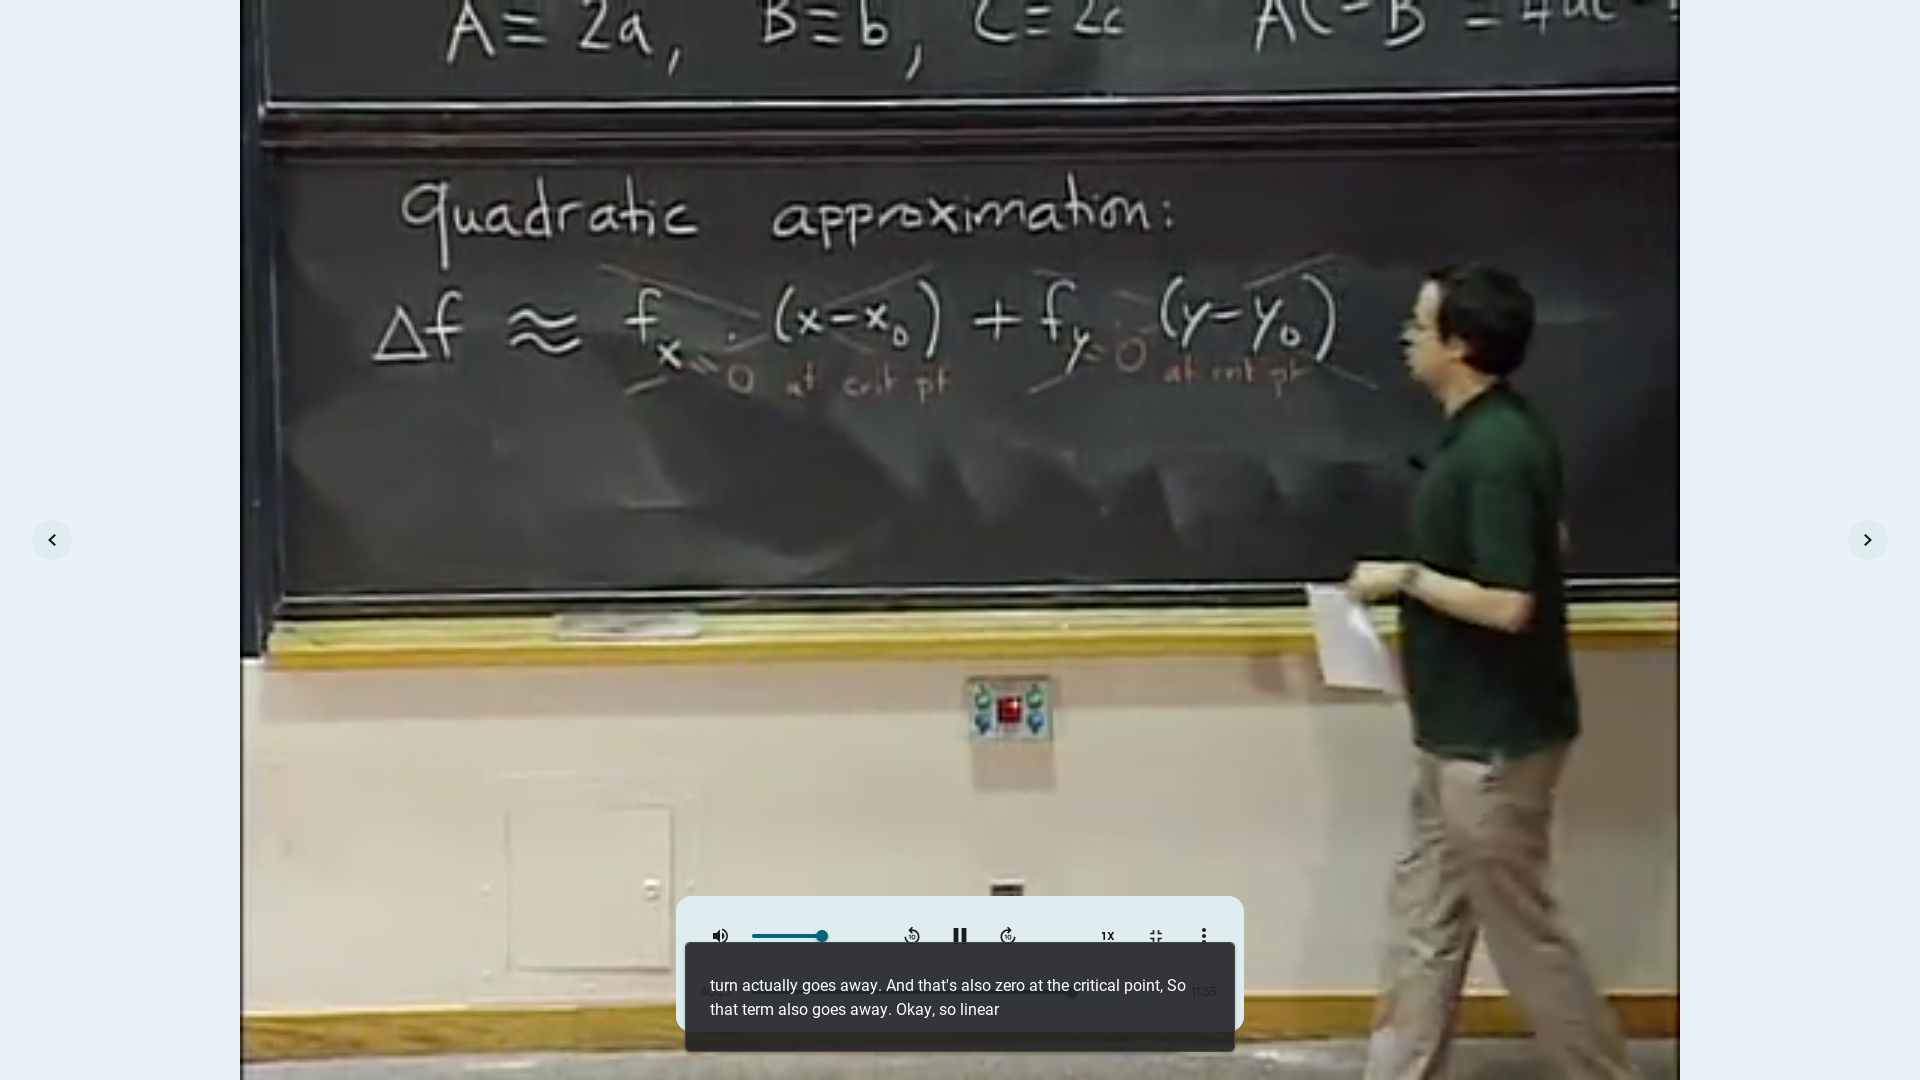 A ≡ 2a, B ≡ b, C ≡ 2c AC - B = 4ac
quadratic approximation:
Δf ≈ fx · (x-x0) + fy · (y-y0)
= 0 at crit pt = 0 at crit pt
1X
turn actually goes away. And that's also zero at the critical point, So
that term also goes away. Okay, so linear